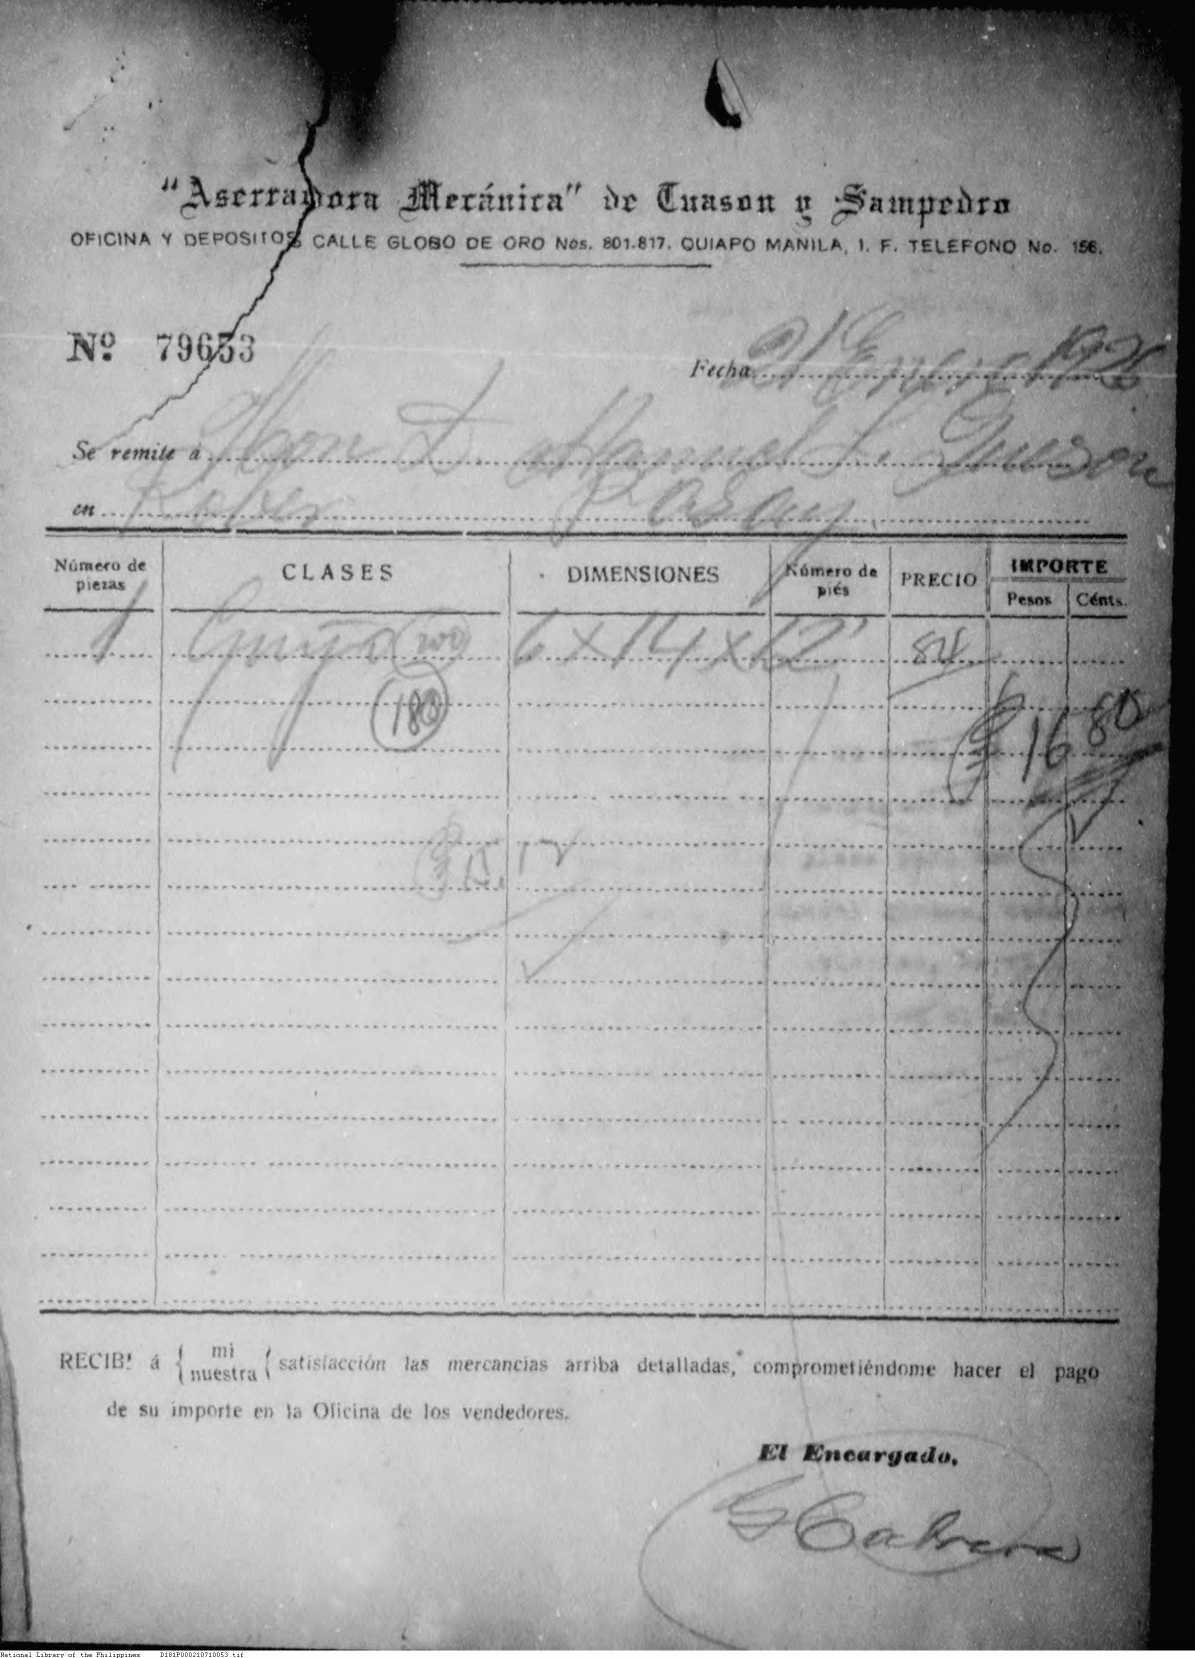 "Aserradora Mecánica" de Tuason y Sampedro
OFICINA Y DEPOSITOS CALLE GLOBO DE ORO Nos. 801-817. QUIAPO MANILA, I. F. TELEFONO No. 156.
Nº 79653
Fecha 21 Enero 192
Se remite á Hon D. Manuel L. Quezon
en Pasay
Número de piezas CLASES DIMENSIONES Número de piés PRECIO IMPORTE Pesos Cénts.
1 6 x 14 x 12' 84
180
₱ 16 80
₱ 15.12
RECIBI á { mi nuestra { satisfacción las mercancias arriba detalladas, comprometiéndome hacer el pago
de su importe en la Oficina de los vendedores.
El Encargado,
G Cabrera
National Library of the Philippines D181P000210710053.tif